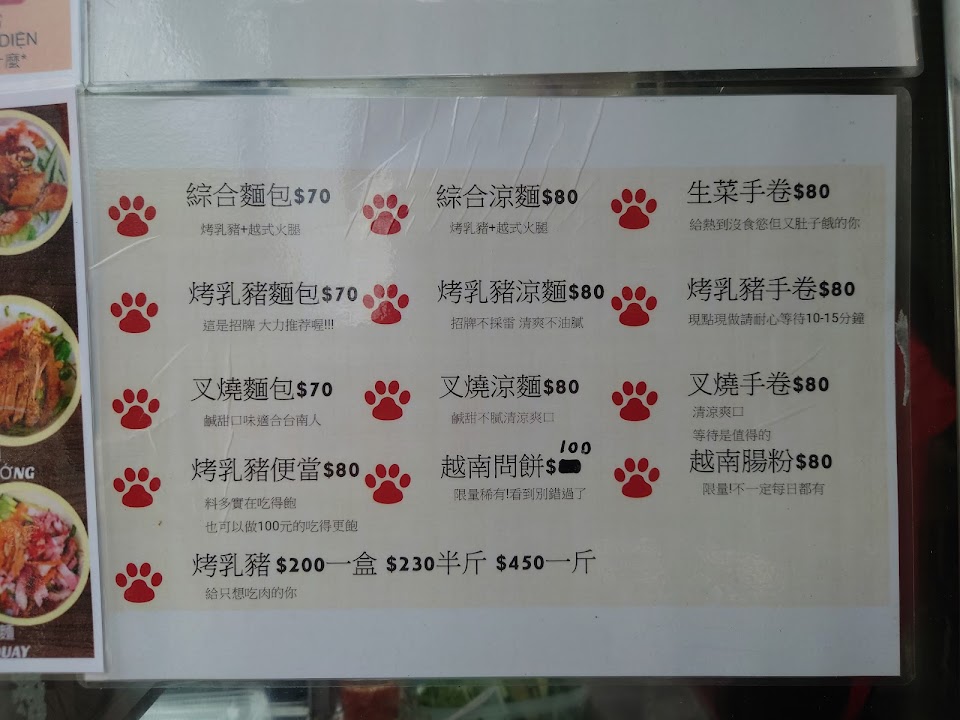 DIỆN
麼*
綜合麵包$70
烤乳豬+越式火腿
綜合涼麵$80
烤乳豬+越式火腿
生菜手卷$80
給熱到沒食慾但又肚子餓的你
烤乳豬麵包$70
這是招牌 大力推荐喔!!!
烤乳豬涼麵$80
招牌不採雷 清爽不油膩
烤乳豬手卷$80
現點現做請耐心等待10-15分鐘
叉燒麵包$70
鹹甜口味適合台南人
叉燒涼麵$80
鹹甜不膩清涼爽口
叉燒手卷$80
清涼爽口
等待是值得的
烤乳豬便當$80
料多實在吃得飽
也可以做100元的吃得更飽
越南問餅$100
限量稀有!看到別錯過了
越南腸粉$80
限量!不一定每日都有
烤乳豬 $200一盒 $230半斤 $450一斤
給只想吃肉的你
ỚNG
麵
QUAY